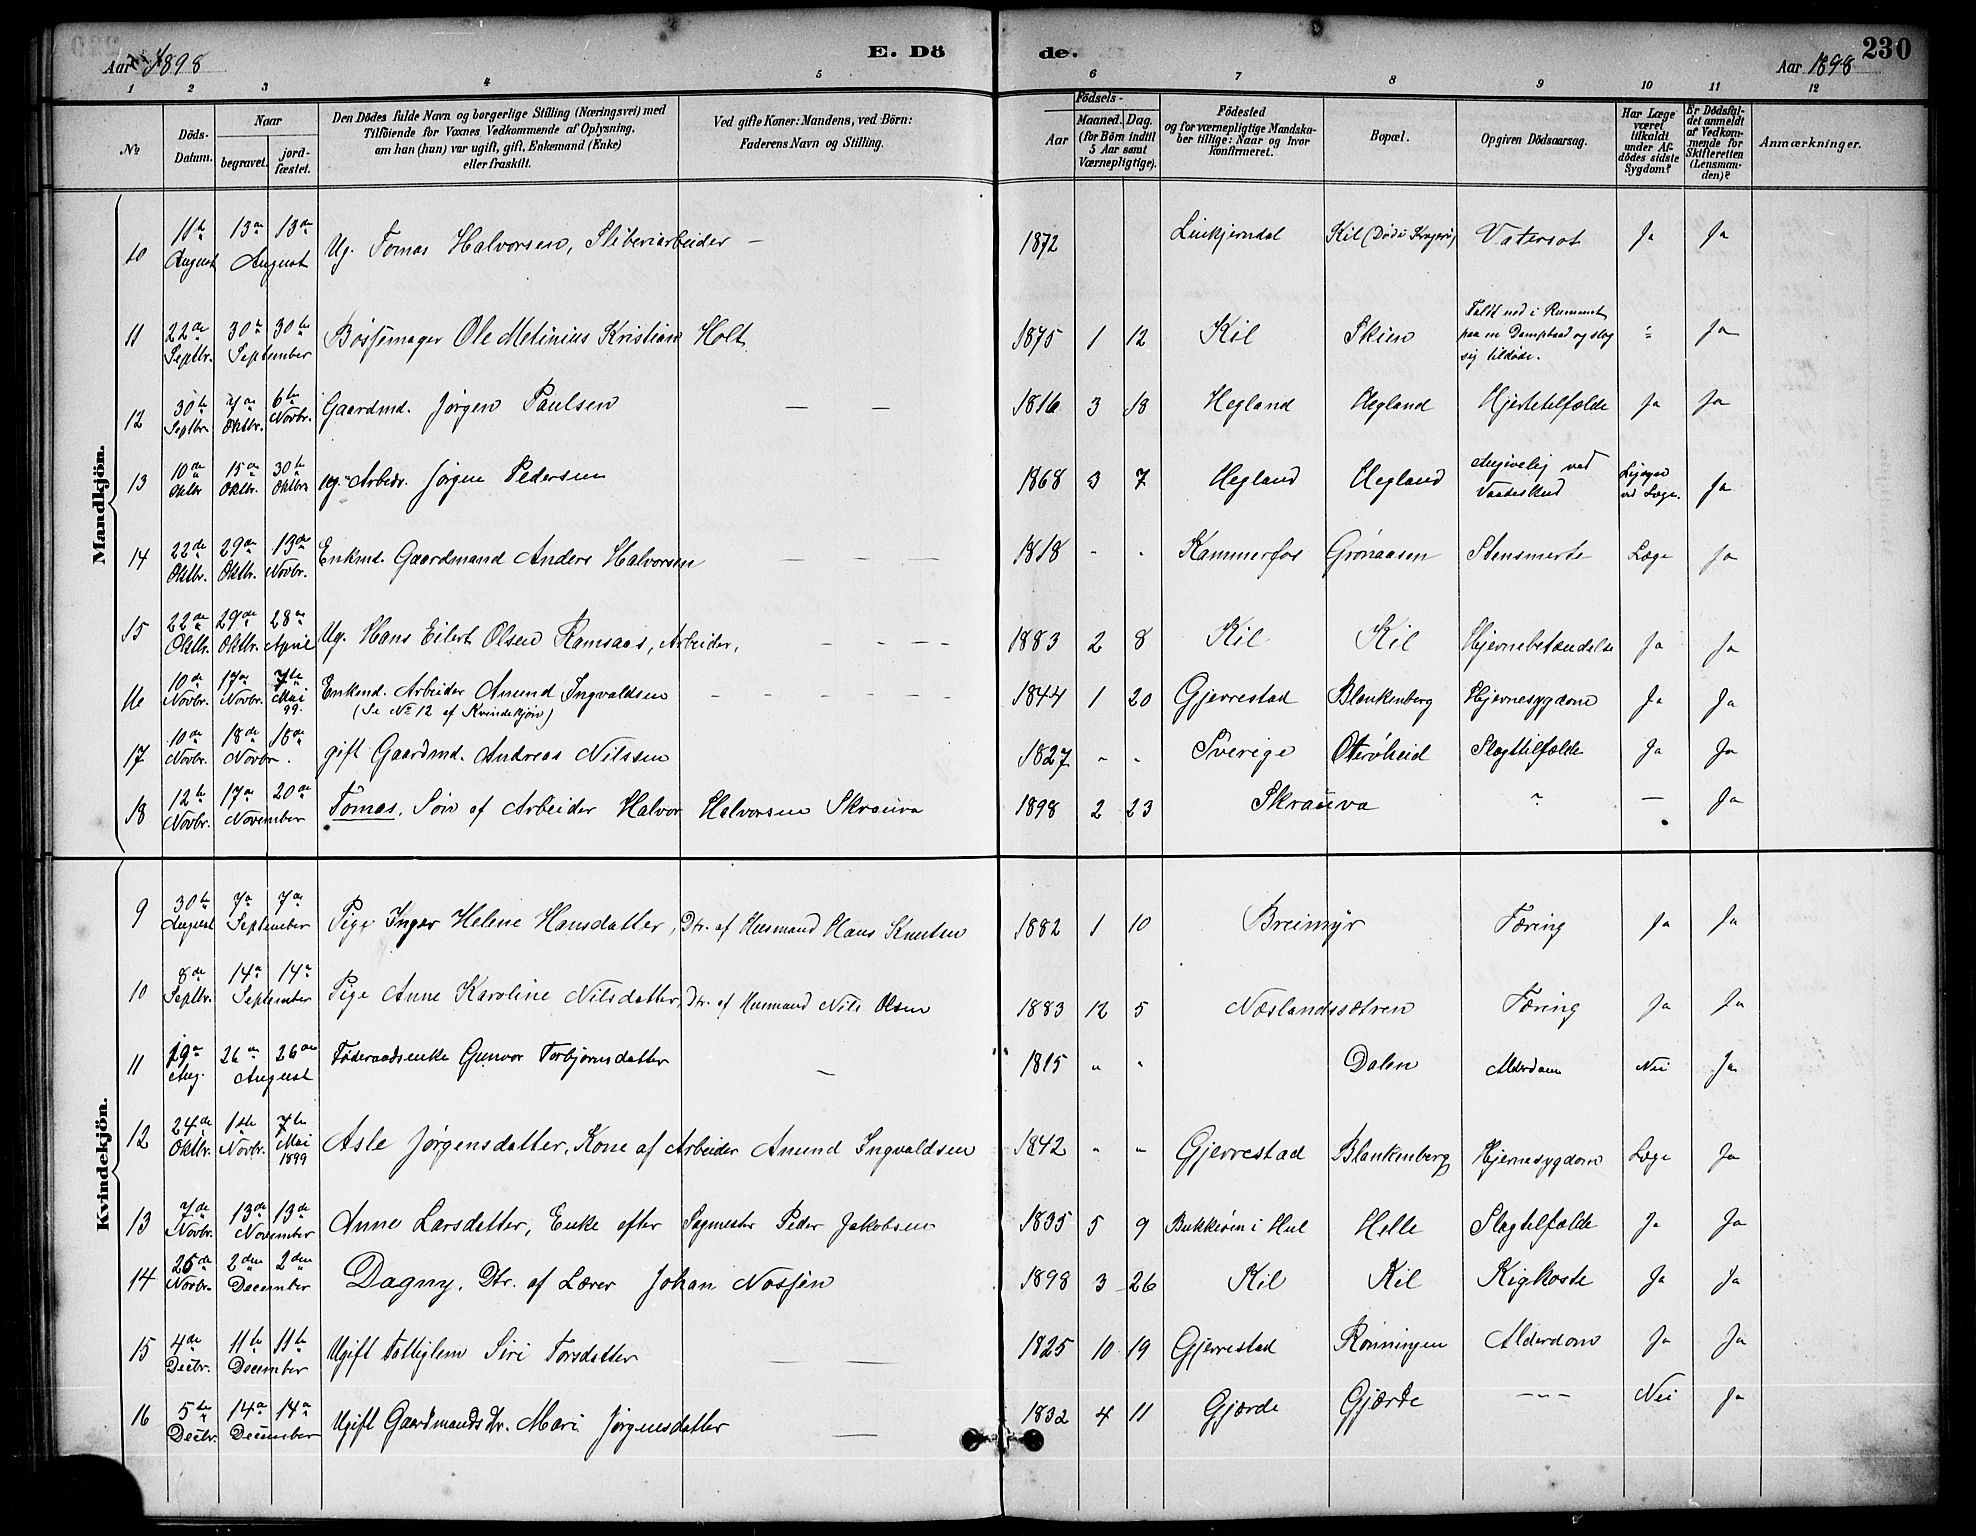 Aar 1898
E. Dö
de.
Aar 1898
230
1 2 3 4 5 6 7 8 9 10 11 12
№
Döds-Datum.
Naar
begravet.
jord-fæstet.
Den Dödes fulde Navn og borgerlige Stilling (Næringsvei) med
Tilföiende for Voxnes Vedkommende af Oplysning,
om han (hun) var ugift, gift, Enkemand (Enke)
eller fraskilt.
Ved gifte Koner: Mandens, ved Börn:
Faderens Navn og Stilling.
Födsels-
Aar
Maaned. Dag.
(for Börn indtil
5 Aar samt
Værnepligtige).
Födested
og for værnepligtige Mandska-
ber tillige: Naar og hvor
konfirmeret.
Bopæl.
Opgiven Dödsaarsag.
Har Læge
været
tilkaldt
under Af-
dödes sidste
Sygdom?
Er Dödsfal-
det anmeldt
af Vedkom-
mende for
Skifteretten
(Lensman-
den)?
Anmærkninger.
Mandkjön.
10 11te August 13de 13de August Ug. Tomas Halvorsen, Sliberiarbeider — 1872 Kil (Død i Kragerø) Vatersot Ja Ja
11 22de Septbr. 30te 30te September Bøssemager Ole Metinius Kristian Holt 1875 1 12 Kil Skien Faldt ned i Rummet
paa en Dampbaad og slog
sig tildøde. Ja
12 30te Septbr. 7de Oktbr. 6te Novbr. Gaardmd. Jørgen Paulsen — — 1816 3 18 Hegland Hegland Hjertetilfælde Ja Ja
13 10de Oktbr 15de Oktbr. 30te Oktbr. ug. Arbeidr. Jørgen Pedersen 1868 3 7 Hegland Hegland Angivelig ved
Vaadeskud Ligsyn
ved Læge. Ja
14 22de Oktbr. 29de Oktbr. 13de Novbr. Enkmd. Gaardmand Anders Halvorsen — — — 1818 " " Kammerfos Grønaasen Stensmerte Læge Ja
15 22de Oktbr. 29de Oktbr. 28de April Ug. Hans Eilert Olsen Ramsaas, Arbeider, — — — — 1883 2 8 Kil Kil Hjernebetændelse Ja Ja
16 10de Novbr. 17de Novbr. 7de Mai 99. Enkmd. Arbeider Anund Ingvaldsen — — — — — — 1844 1 20 Gjerrestad Blankenberg Hjernesygdom Ja Ja
(Se № 12 af Kvindekjøn)
17 10de Novbr. 18de 18de Novbr. gift Gaardmd. Andreas Nilssen 1827 " " Sverige Oterøheid Slagtilfælde Ja Ja
18 12te Novbr. 17de 20de November Tomas, Søn af Arbeider Halvor Halvorsen Skrauva 1898 2 23 Skrauva " — Ja
Kvindekjön.
9 30te August 7de 7de September Pige Inger Helene Hansdatter, Dtr. af Husmand Hans Knutsen 1882 1 10 Breimyr Tæring Ja Ja
10 8de Septbr. 14de 14de September Pige Anne Karoline Nilsdatter, Dtr. af Husmand Nils Olsen 1883 12 5 Næslandssætren Tæring Ja Ja
11 19de Aug. 26de 26de August Føderaadsenke Gunvor Torbjørnsdatter — 1815 " " Dalen Alderdom Nei Ja
12 24de Oktbr. 1ste Novbr. 7de Mai 1899 Asle Jørgensdatter, Kone af Arbeider Anund Ingvaldsen 1842 " " Gjerrestad Blankenberg Hjernesygdom Læge Ja
13 7de Novbr. 13de 13de November Anne Larsdatter, Enke efter Sagmester Peder Jakobsen 1835 5 9 Helle Slagtilfælde Ja Ja
14 25de Novbr. 2den 2den December Dagny, Dtr. af Lærer Johan Nosjøn 1898 3 26 Kil Kil Kighoste Ja Ja
15 4de Decbr. 11te 11te December Ugift Fattiglem Siri Torsdatter — — 1825 10 19 Gjerrestad Rønningen Alderdom Ja Ja
16 5te Decbr. 14de 14de December Ugift Gaardmands Dtr. Mari Jørgensdatter — 1832 4 11 Gjærde Gjærde — " — Nei Ja